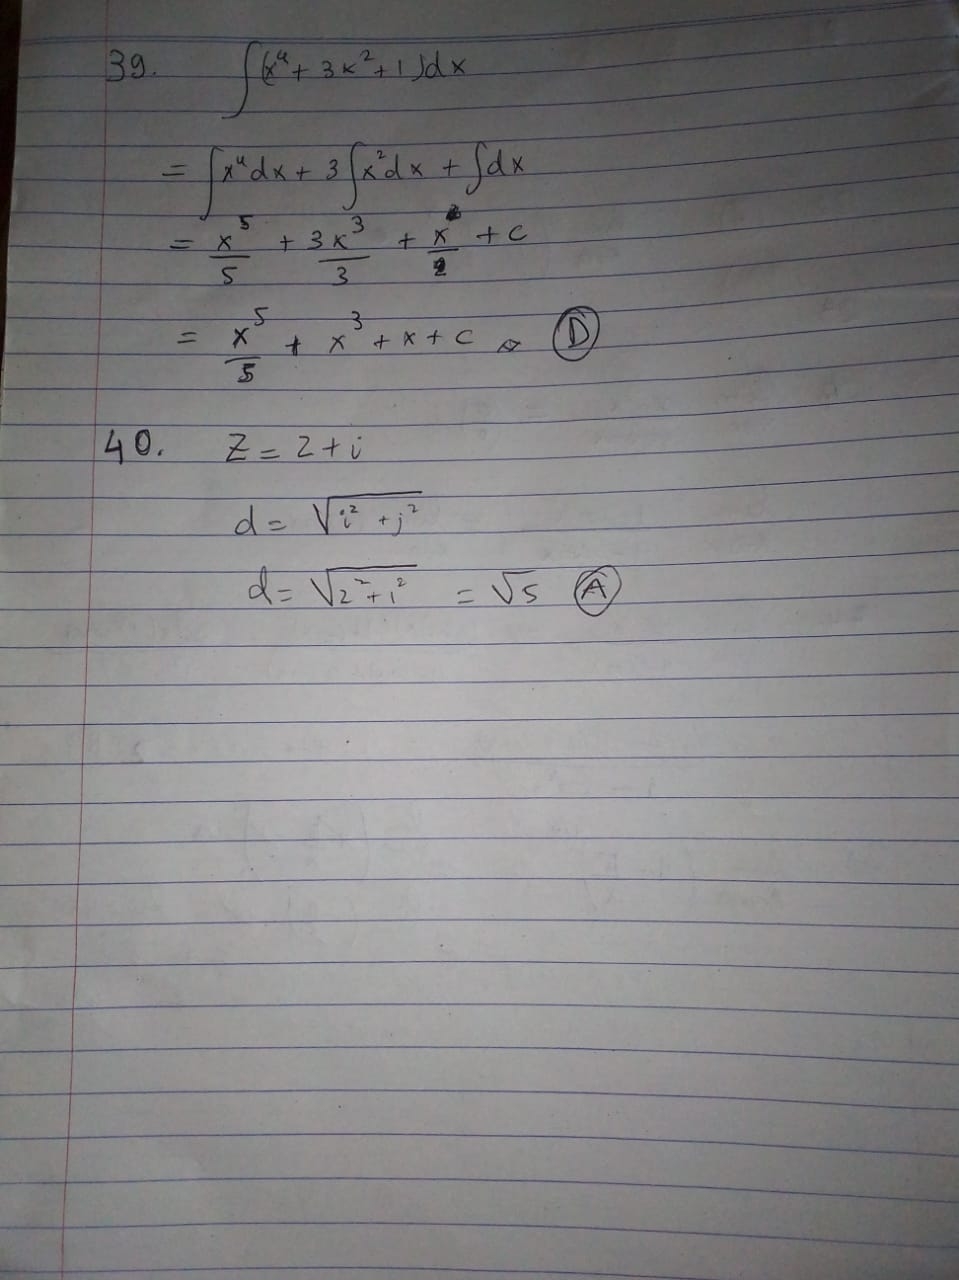 39. ∫(x⁴ + 3x² + 1)dx
= ∫x⁴dx + 3∫x²dx + ∫dx
= x⁵/5 + 3x³/3 + x + c
= x⁵/5 + x³ + x + c D
40. Z = 2 + i
d = √(i² + j²)
d = √(2² + 1²) = √5 A